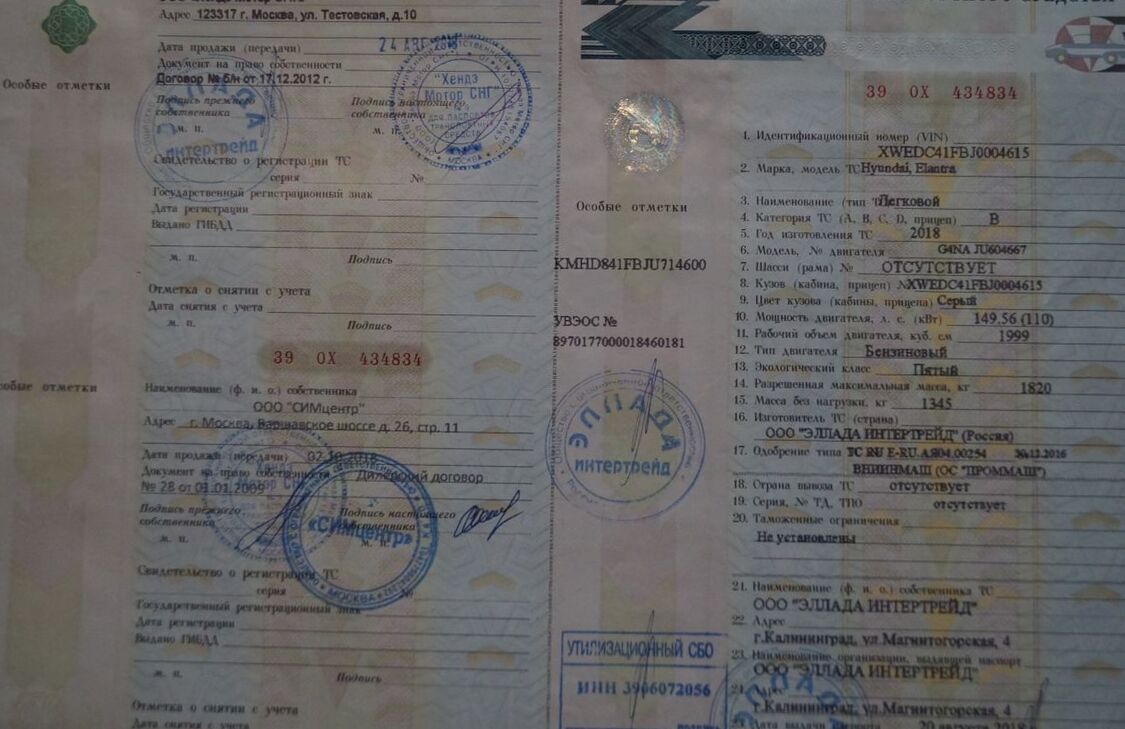 Адрес 123317 г. Москва, ул. Тестовская, д.10
Дата продажи (передачи) 24 АВГ
Документ на право собственности
Договор № б/н от 17.12.2012 г.
Особые отметки
Подпись прежнего собственника
Подпись настоящего собственника
м. п.
м. п.
ЭЛЛАДА
интертрейд
"Хендэ
Мотор СНГ"
ДЛЯ ПАСПОРТОВ
ТРАНСПОРТНЫХ
СРЕДСТВ
МОСКВА
Свидетельство о регистрации ТС
серия №
Государственный регистрационный знак
Дата регистрации
Выдано ГИБДД
м. п. Подпись
Отметка о снятии с учета
Дата снятия с учета
м. п.
Подпись
39 ОХ 434834
особые отметки
Наименование (ф. и. о.) собственника
ООО "СИМцентр"
Адрес г. Москва, Варшавское шоссе д. 26, стр. 11
Дата продажи (передачи) 02.10.2018
Документ на право собственности Дилерский договор
№ 28 от 01.01.2009
Подпись прежнего собственника
Подпись настоящего собственника
м. п.
м. п.
«СИМцентр»
МОСКВА
Свидетельство о регистрации ТС
серия №
Государственный регистрационный знак
Дата регистрации
Выдано ГИБДД
м. п. Подпись
Отметка о снятии с учета
Дата снятия с учета
39 ОХ 434834
Особые отметки
KMHD841FBJU714600
УВЭОС №
8970177000018460181
ЭЛЛАДА
интертрейд
УТИЛИЗАЦИОННЫЙ СБО
ИНН 3906072056
1. Идентификационный номер (VIN)
XWEDC41FBJ0004615
2. Марка, модель ТС Hyundai, Elantra
3. Наименование (тип ТС) Легковой
4. Категория ТС (A, B, C, D, прицеп) B
5. Год изготовления ТС 2018
6. Модель, № двигателя G4NA JU604667
7. Шасси (рама) № ОТСУТСТВУЕТ
8. Кузов (кабина, прицеп) № XWEDC41FBJ0004615
9. Цвет кузова (кабины, прицепа) Серый
10. Мощность двигателя, л. с. (кВт) 149.56 (110)
11. Рабочий объем двигателя, куб. см 1999
12. Тип двигателя Бензиновый
13. Экологический класс Пятый
14. Разрешенная максимальная масса, кг 1820
15. Масса без нагрузки, кг 1345
16. Изготовитель ТС (страна)
ООО "ЭЛЛАДА ИНТЕРТРЕЙД" (Россия)
17. Одобрение типа ТС RU E-RU.АЯ04.00254 30.12.2016
ВНИИНМАШ (ОС "ПРОММАШ")
18. Страна вывоза ТС отсутствует
19. Серия, № ТД, ТПО отсутствует
20. Таможенные ограничения
Не установлены
21. Наименование (ф. и. о.) собственника ТС
ООО "ЭЛЛАДА ИНТЕРТРЕЙД"
22. Адрес
г.Калининград, ул.Магнитогорская, 4
23. Наименование организации, выдавшей паспорт
ООО "ЭЛЛАДА ИНТЕРТРЕЙД"
24. Адрес
г.Калининград, ул.Магнитогорская, 4
Дата выдачи паспорта 20 августа 2018